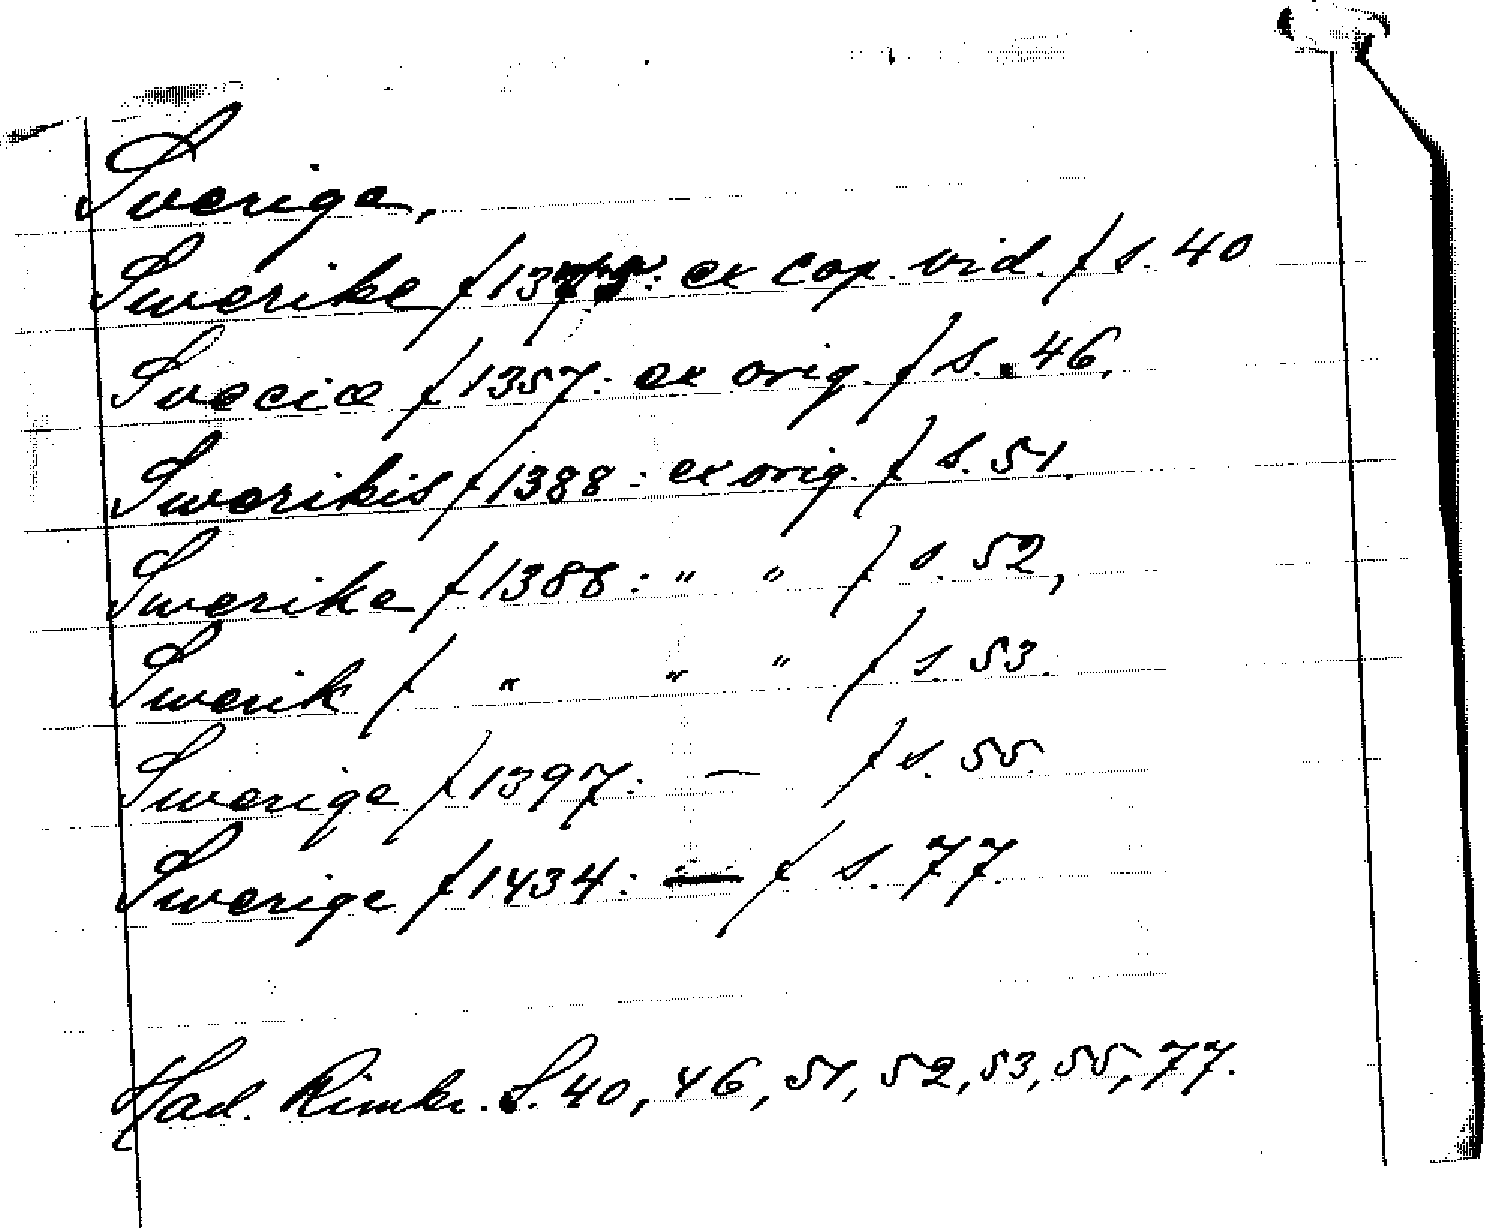 Sverige.
Swerike / 13 : ex cop. vid. / s. 40
Sveciæ / 1357: ex orig. / s. 46.
Swerikis / 1388: ex orig. / s. 51.
Swerike / 1388: " " / s. 52,
Swerik / " " " / s. 53.
Swerige / 1397: — / s. 55.
Swerige / 1434: — / s. 77.
Had. Rimkr. S. 40, 46, 51, 52, 53, 55, 77.